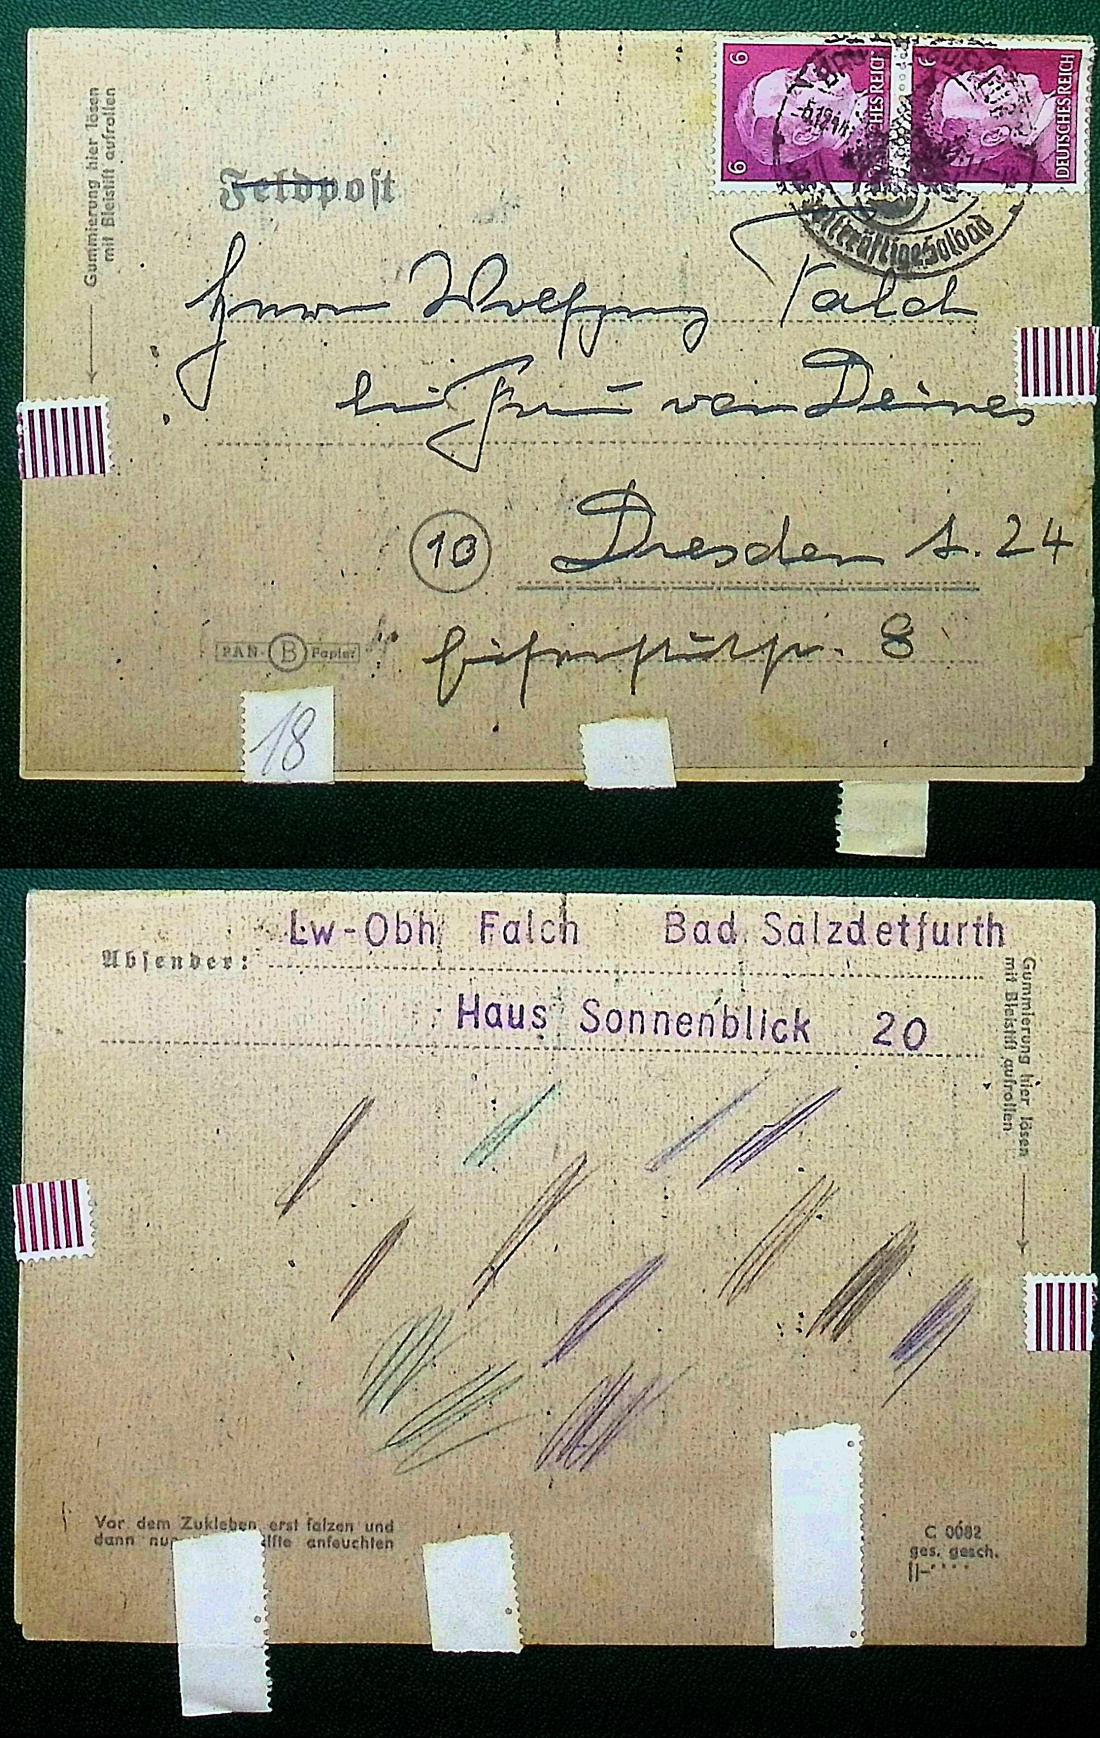 Gummierung hier lösen
mit Bleistift aufrollen
6
DEUTSCHES REICH
Feldpost
Solbad
Herrn Wolfgang Falch
bei Frau von Deines
10 Dresden A. 24
8
PAN- B Papier
18
Lw-Obh Falch Bad Salzdetfurth
Absender:
Haus Sonnenblick 20
Gummierung hier lösen
mit Bleistift aufrollen.
Vor dem Zukleben erst falzen und
dann anfeuchten
C 0082
ges. gesch.